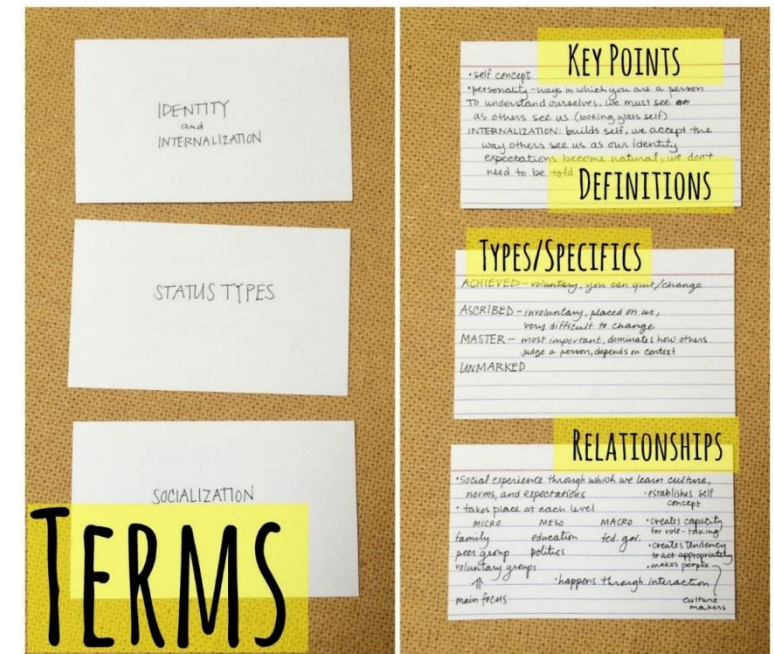 IDENTITY
and
INTERNALIZATION
STATUS TYPES
SOCIALIZATION
TERMS
KEY POINTS
•self concept
•personality - ways in which you are a person
TO understand ourselves, we must see
as others see us (looking glass self)
INTERNALIZATION: builds self, we accept the
way others see us as our identity
expectations become natural, we don't
need to be told
DEFINITIONS
TYPES/SPECIFICS
ACHIEVED - voluntary, you can quit/change
ASCRIBED - involuntary, placed on us,
very difficult to change
MASTER - most important, dominates how others
judge a person, depends on context
UNMARKED
RELATIONSHIPS
•Social experience through which we learn culture,
norms, and expectations
•establishes self
concept
• takes place at each level
MICRO MESO MACRO
family education fed. gov.
peer group politics
voluntary groups
⇑
main focus
•happens through interaction
•creates capacity
for role-taking
•creates tendency
to act appropriately
•makes people
culture
makers